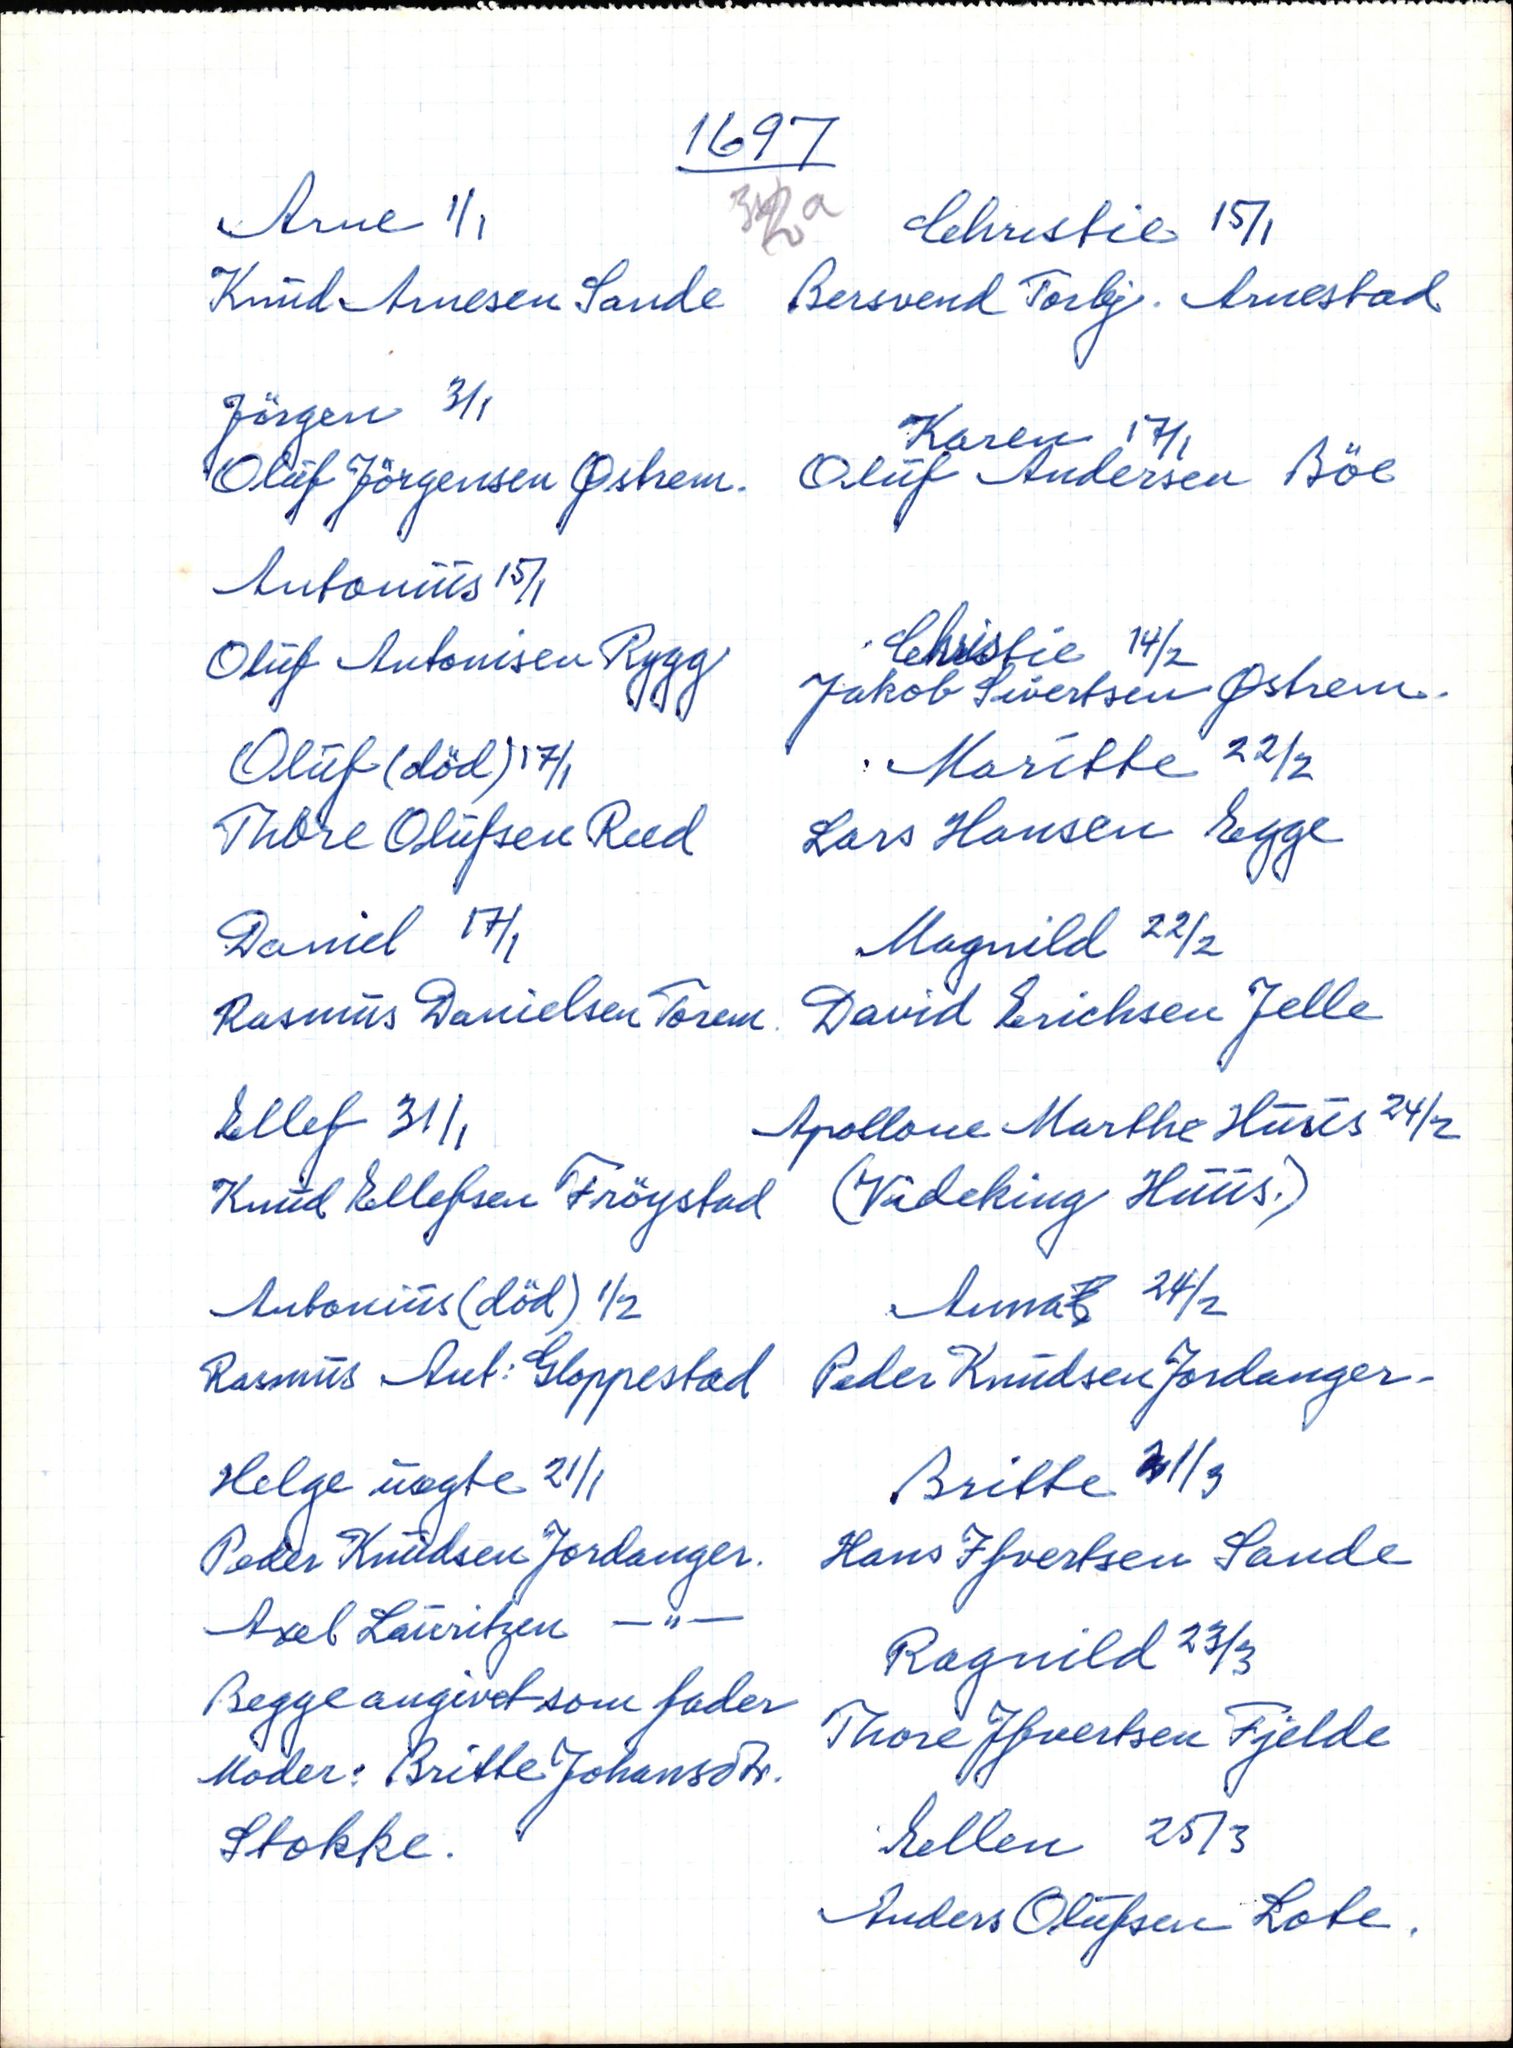 1697
Arne 1/1
Knud Arnesen Sande
Jörgen 3/1
Oluf Jörgensen Østrem.
Antonius 15/1
Oluf Antonisen Rygg
Oluf (död) 17/1
Thore Olufsen Reed
Daniel 17/1
Rasmus Danielsen Torem.
Ellef 31/1
Knud Ellefsen Fröystad
Antonius (död) 1/2
Rasmus Ant: Gloppestad
Helge uægte 21/1
Peder Knudsen Jordanger.
Axel Lauritzen —"—
Begge angivet som fader
Moder: Britte Johansdtr.
Stokke.
Christie 15/1
Bersvend Torbj. Arnestad
Karen 17/1
Oluf Andersen Böe
Christie 14/2
Jakob Sivertsen Østrem.
Maritte 22/2
Lars Hansen Egge
Magnild 22/2
David Erichsen Jelle
Apollone Marthe Huus 24/2
(Videking Huus.)
Anna 24/2
Peder Knudsen Jordanger-
Britte 21/3
Hans Ifvertsen Sande
Ragnild 23/3
Thore Ifvertsen Fjelde
Ellen 25/3
Anders Olufsen Lote.